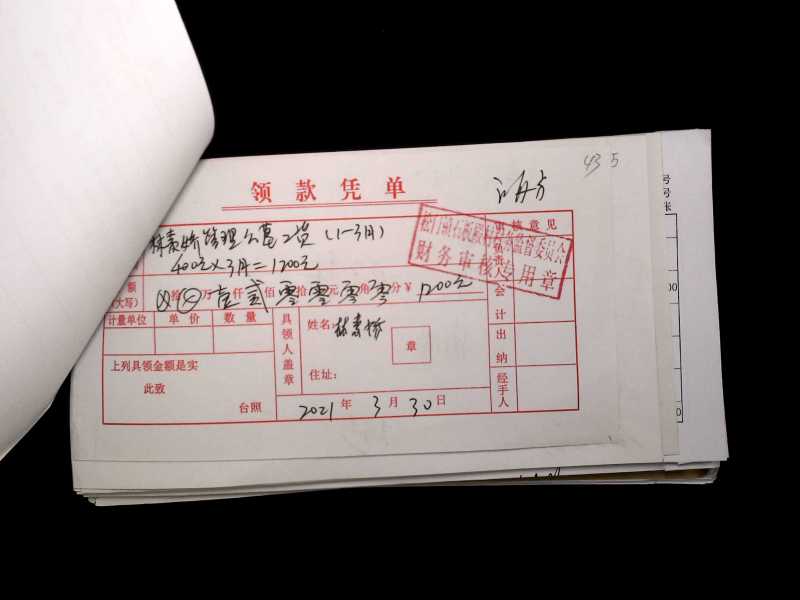 43 5
领款凭单
林素娇管理公墓工资(1-3月)
400元×3月=1200元
额
(大写)
拾万壹仟贰佰零拾零元零角零分¥ 1200元
松门镇石板殿村村务监督委员会
财务审核专用章
审核意见
负责人
会计
出纳
经手人
计量单位 单价 数量
上列具领金额是实
此致
台照
具领人盖章
姓名: 林素娇
章
住址:
2021年3月30日
号
号
张
00
0